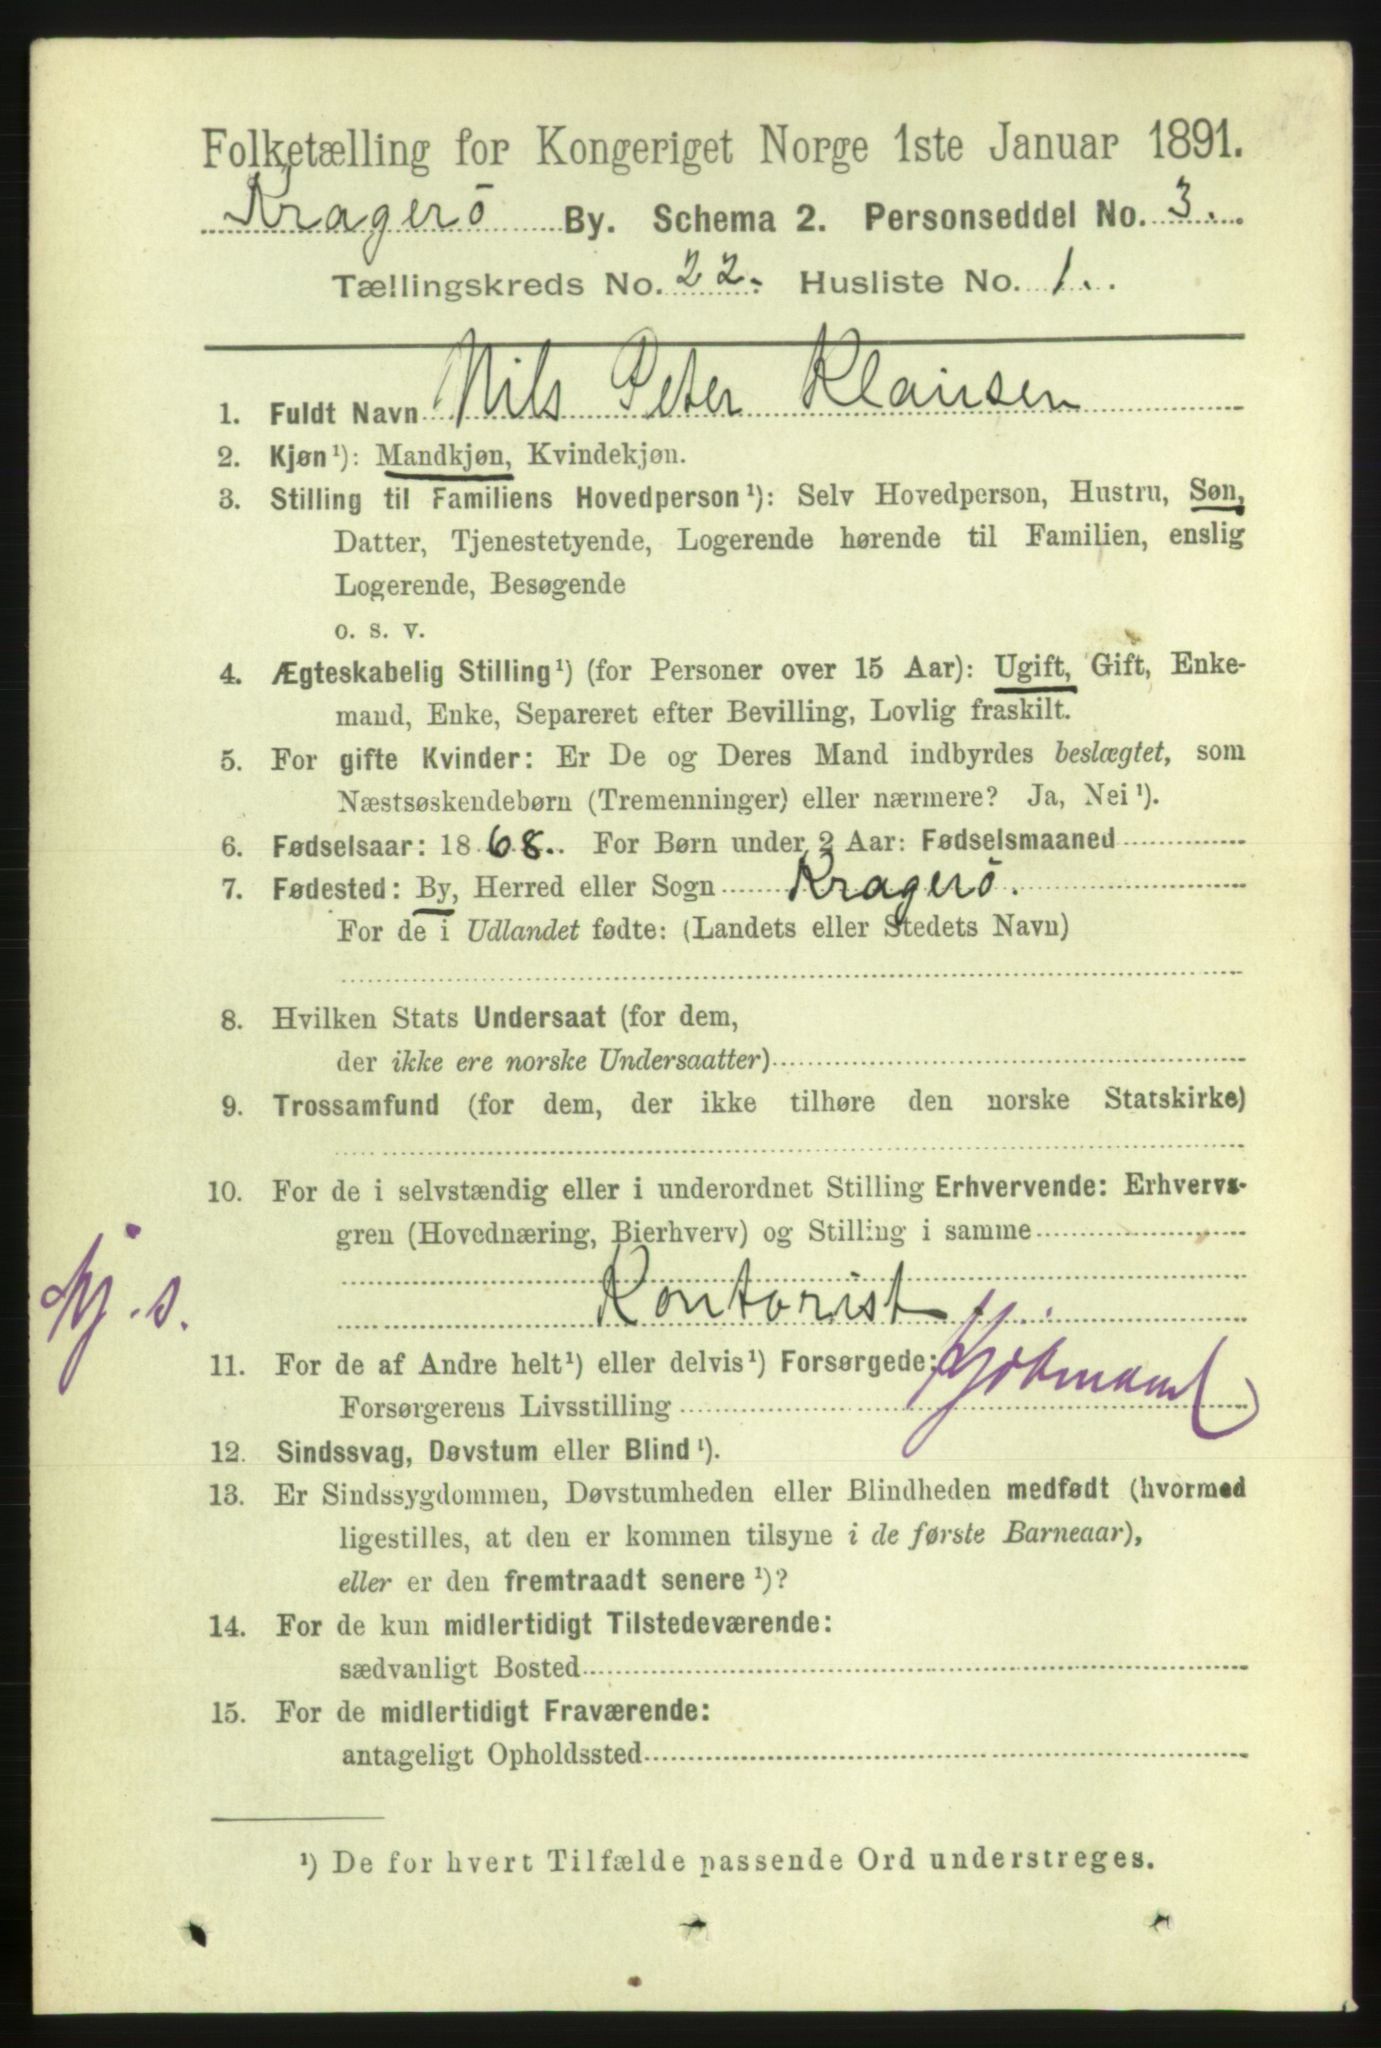 Folketælling for Kongeriget Norge 1ste Januar 1891.
Kragerö By. Schema 2. Personseddel No. 3.
Tællingskreds No. 22. Husliste No. 1.
1. Fuldt Navn Nils Peter Klausen
2. Kjøn¹): Mandkjøn, Kvindekjøn.
3. Stilling til Familiens Hovedperson¹): Selv Hovedperson, Hustru, Søn,
Datter, Tjenestetyende, Logerende hørende til Familien, enslig
Logerende, Besøgende
o. s. v.
4. Ægteskabelig Stilling¹) (for Personer over 15 Aar): Ugift, Gift, Enke-
mand, Enke, Separeret efter Bevilling, Lovlig fraskilt.
5. For gifte Kvinder: Er De og Deres Mand indbyrdes beslægtet, som
Næstsøskendebørn (Tremenninger) eller nærmere? Ja, Nei¹).
6. Fødselsaar: 1868. For Børn under 2 Aar: Fødselsmaaned
7. Fødested: By, Herred eller Sogn Kragerö.
For de i Udlandet fødte: (Landets eller Stedets Navn)
8. Hvilken Stats Undersaat (for dem,
der ikke ere norske Undersaatter)
9. Trossamfund (for dem, der ikke tilhøre den norske Statskirke)
10. For de i selvstændig eller i underordnet Stilling Erhvervende: Erhvervs-
gren (Hovednæring, Bierhverv) og Stilling i samme
Kontorist
kj. s.
11. For de af Andre helt¹) eller delvis¹) Forsørgede:
Forsørgerens Livsstilling Kjøbmand
12. Sindssvag, Døvstum eller Blind¹).
13. Er Sindssygdommen, Døvstumheden eller Blindheden medfødt (hvormed
ligestilles, at den er kommen tilsyne i de første Barneaar),
eller er den fremtraadt senere¹)?
14. For de kun midlertidigt Tilstedeværende:
sædvanligt Bosted
15. For de midlertidigt Fraværende:
antageligt Opholdssted
¹) De for hvert Tilfælde passende Ord understreges.